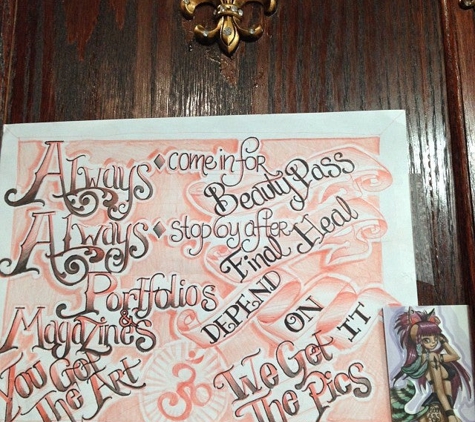 Always • come in for
Beauty Pass
Always • stop by after
Final Heal
Portfolios
& Magazines
DEPEND ON IT
You Got
The Art
ॐ
We Get
The Pics